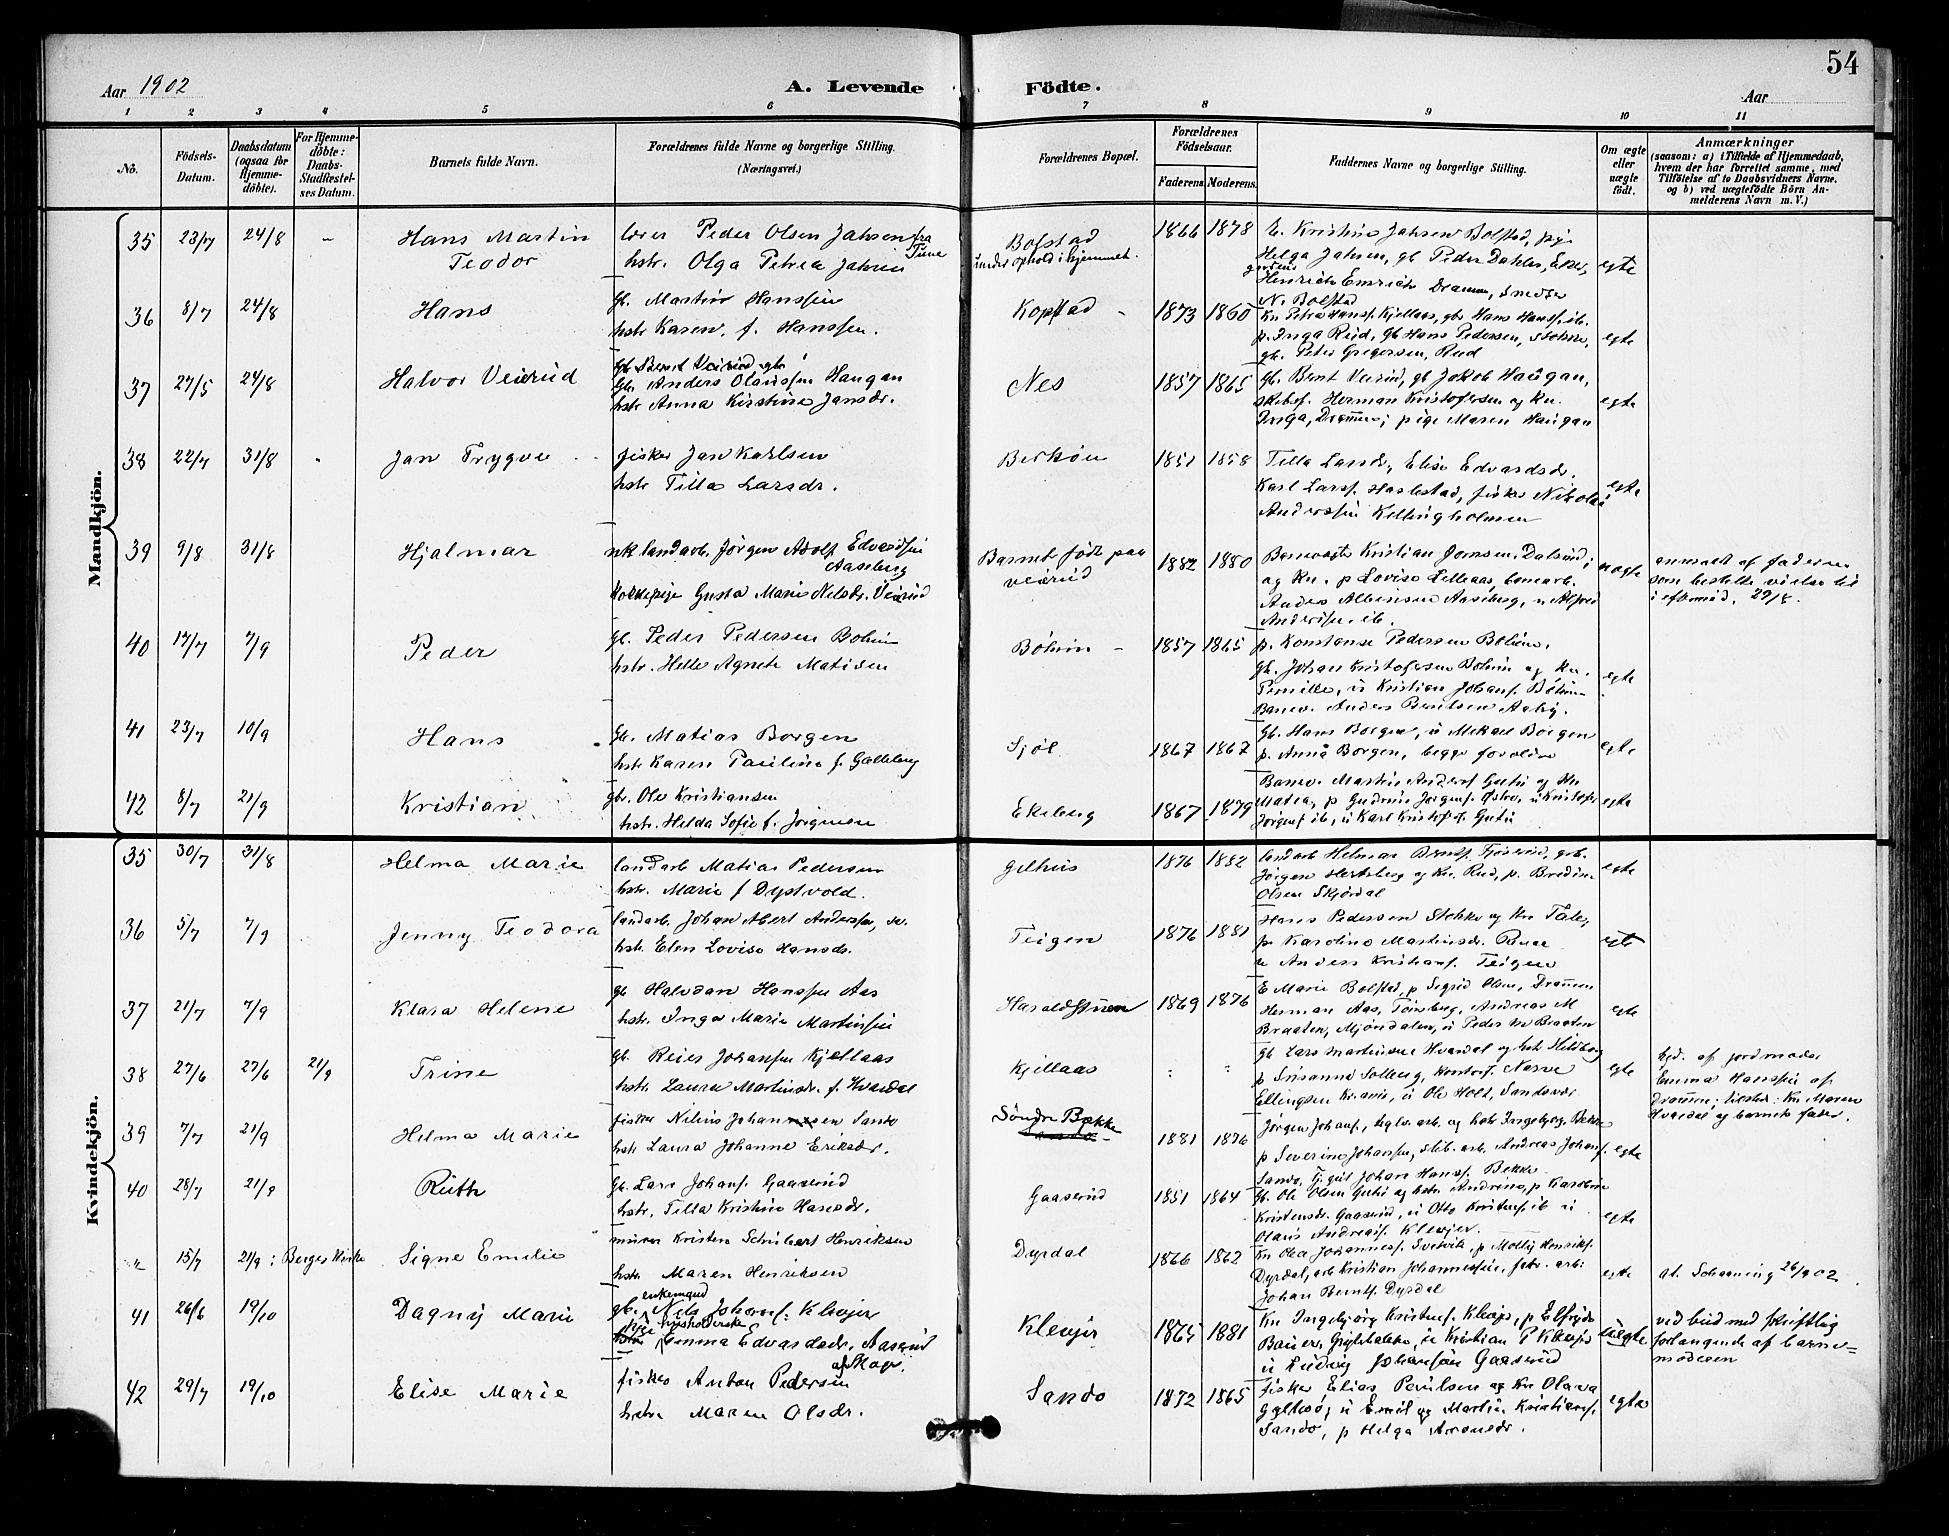 54
Aar 1902
A. Levende Födte.
Aar
1 2 3 4 5 6 7 8 9 10 11
No.
Födsels-Datum.
Daabsdatum (ogsaa for Hjemme-döbte).
For Hjemme-döbte: Daabs-Stadfæstel-ses Datum.
Barnets fulde Navn.
Forældrenes fulde Navne og borgerlige Stilling. (Næringsvei.)
Forældrenes Bopæl.
Forældrenes Födselsaar.
Faderens. Moderens.
Faddernes Navne og borgerlige Stilling.
Om ægte eller uægte födt.
Anmærkninger
(saasom: a) i Tilfælde af Hjemmedaab, hvem der har forrettet samme, med Tilföielse af to Daabsvidners Navne, og b) ved uægtefödte Börn An-melderens Navn m. V.)
Mandkjön.
35 23/7 24/8 - Hans Martin Teodor
lærer Peder Olsen Jahsen fra Tune
hstr. Olga Petrea Jahsen
Bolstad
under ophold i hjemmet.
1866 1878
E. Kristine Jahsen Bolstad, pige
Helga Jahsen, gb Peder Dahler, Eker,
Henrich Emrich Dramen,
N. Bolstad
egte
36 8/7 24/8 Hans
gb. Martin Hanssen
hstr Karen, f. Hanssen.
Kopstad -
1873 1860
Kn Petra Hansf. Kjellaas, gb Hans Hansf. ib.
p. Inga Rud, gb Hans Pedersen, Stokke,
gb. Peter Gregersen, Rud
egte
37 27/5 24/8 Halvor Veierud
gb Bernt Veierud
gb. Anders Olaussen Haugan
hstr Anna Kirstine Jansdr.
Nes
1857 1865
gb. Bernt Veierud, gb Jakob Haugan,
Herman Kristofersen og Kn.
Inga, Drammen; pige Maren Haugan
egte
38 22/7 31/8 Jan Trygve
fisker Jan Karlsen
hstr Tilla Larsdr.
Berköen
1851 1858
Tilla Larsdr, Elise Edvardsdr.
Karl Larsf. Haslestad, fisker Nikolai
Anderssen Kellingholmen
egte
39 9/8 31/8 Hjalmar
uk landarb. Jørgen Adolf Edvardsen Aaseberg
Kokkepige Gusta Marie Nelsdr. Veierud
Barnet født paa Veierud
1882 1880
Banevogt Kristian Jornsen, Dalsrud,
og Kn. p Lovise Lilleaas, banearb.
Anders Albinusen Aaseberg, u Alfred
Andersen ib.
uegte
anmeldt af faderen
som bestilte vielse til
i eftermid. 29/8.
40 17/7 7/9 Peder
gb. Peder Pedersen Bohin
hstr. Helle Agnete Matisen
Böhin -
1857 1865
p. Konstanse Pedersen Bohin,
gb. Johan Kristofersen Böhin og Kn.
Pernille, u Kristian Johansf. Böhin
Banev. Anders Berntsen Aaby.
egte
41 23/7 10/9 Hans
gb. Matias Borgen
hstr Karen Pauline f. Galleberg
Sjöl
1867 1867
Gb. Hans Borgen, u Mekael Borgen
p. Anna Borgen, begge forældre
egte
42 8/7 21/9 Kristian
gbr. Ole Kristiansen
hstr. Hilda Sofie f. Jørgensen
Ekeberg
1867 1879
Banev. Martin Andersf Gutu og Kn
Matea, p Gudrun Jørgensf. Østre, u Kristofer
Jörgensf ib, u Karl Kristofersf. Gutu
egte
Kvindekjön.
35 30/7 31/8 Helma Marie
landarb Matias Pedersen
hstr. Marie f Dystvold.
Gilhus
1876 1882
landarb Helmar Berntsf. Fjösrud, grb.
Jörgen Hertsberg og Kn. Rud, p. Bredine
Olsen Skjördal
egte
36 5/7 7/9 Jenny Teodora
landarb. Johan Albert Anderssen, sv.
hstr. Elen Loviso Hansdr.
Teigen
1876 1881
Hans Pedersen Stokke og Kn Tale,
p. Karoline Martinsdr. Buer
u Anders Kristiansf. Teigen
egte
37 21/7 7/9 Klara Helene
gb Halvdan Hanssen Aas
hstr. Inga Marie Martinsen
Haraldstuen
1869 1876
E Marie Bolstad, p Sigrid Olsen, Dramen
Herman Aas, Tönsberg, Andreas M
Braaten, Mjöndalen, u Peder M Braaten
egte
38 27/6 27/6 21/9 Trine
gb. Reier Johansen Kjellaas
hstr. Laura Martinsdr. f. Hvardal
Kjellaas
: :
gb Lars Martinsen Hvardal og hstr Hilborg
p Susanna Solberg, Narve
Ellingsen Kr.ania, u Ole Holt, Sandsvær
egte
hjd. af jordmoder
Emma Hanssen af
Drammen; tilsted: Kn Maren
Hvardal og barnets fader.
39 7/7 21/9 Helma Marie
fisker Nilius Johansen Sando
hstr Laura Johanne Eriksdr.
Söndre Bække
1881 1876
Jörgen Johansf, teglv. arb. og hstr Ingeborg Bekke
p Severine Johansen, slib. arb. Andreas Johansf.
Sando, Johan Hansf. Bekke
egte
40 28/7 21/9 Ruth
Gb. Lars Johansf. Gaaserud
hstr. Tilla Kristine Hansdr.
Gaaserud
1851 1864
Gb. Ole Olsen Gutu og hstr Andrine, p Karoline
Kristensdr. Gaaserud, u Otto Kristensf. ib u
Olaus Andreasf. Klevjer
egte
" 15/7 21/9: Berger Kirke Signe Emilie
murer Kristen Schubert Henriksen
hstr. Maren Henriksen
Dyrdal
1866 1862
Kn Ola Johannesf. Svelvik, p Molly Henriksf.
Dyrdal, arb Kristian Johannessen, fabr. arb:
Johan Berntsf. Dyrdal
egte
at. Schaaning 26/9 02.
41 26/6 19/10 Dagny Marie
gb. enkemand Nels Johansf. Klevjer
pige husholderske Emma Edvardsdr. Aaserud af Skoger.
Klevjer
1865 1881
Kn Ingeborg Kristensf. Klevjer, p Elfrida
Bauer, u Kristian P Klevjer
u Ludvig Johansen Gaaserud
uegte
ved bud med skriftlig
forlangende af barne=
moderen
42 29/7 19/10 Elise Marie
fisker Anton Pedersen
hstr Maren Olsdr.
Sando
1872 1865
fisker Elias Paulsen og Kn Olava
u Emil og Martin Kristiansf.
Sando, p Helga Arnesdr.
egte